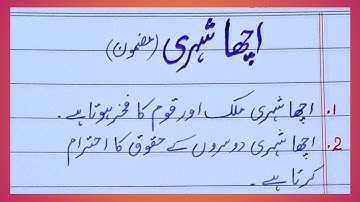 اچھا شہری (مضمون)
1. اچھا شہری ملک اور قوم کا فخر ہوتا ہے۔
2. اچھا شہری دوسروں کے حقوق کا احترام
کرتا ہے۔